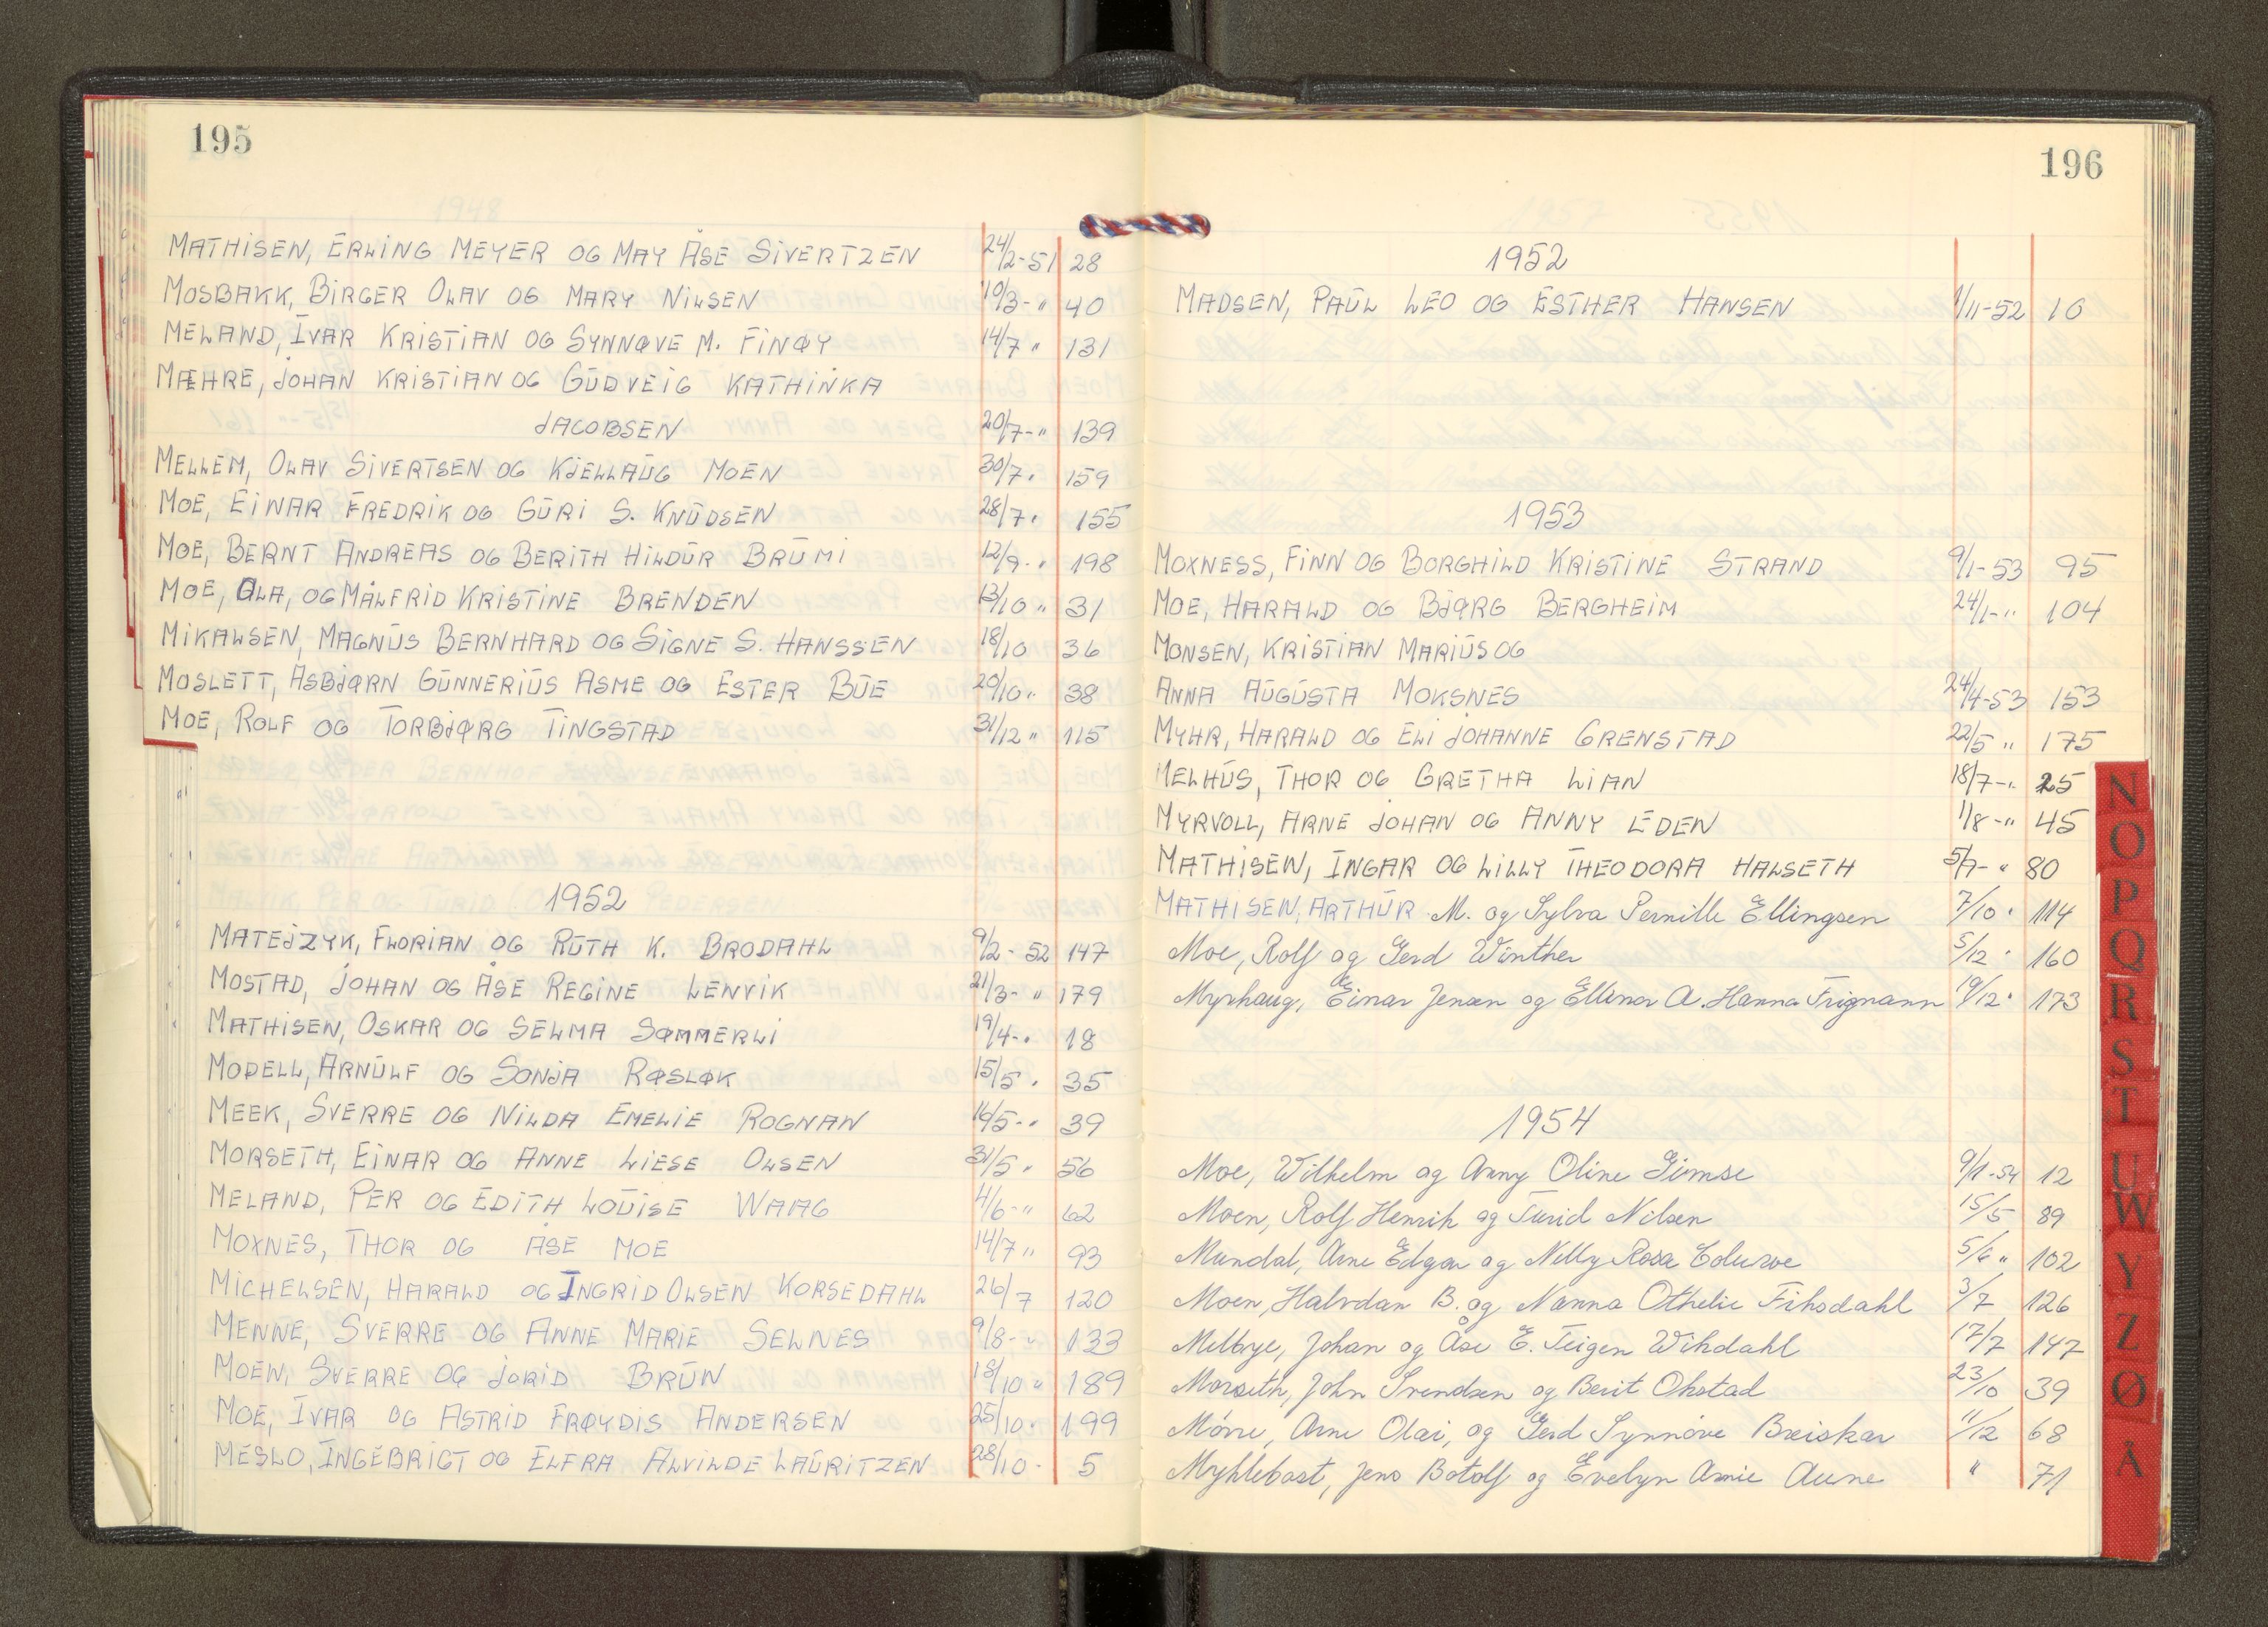 195
MATHISEN, ERLING MEYER OG MAY ÅSE SIVERTZEN 24/2-51 28
MOSBAKK, BIRGER OLAV OG MARY NILSEN 10/3-" 40
MELAND, IVAR KRISTIAN OG SYNNØVE M. FINØY 14/7 " 131
MÆHRE, JOHAN KRISTIAN OG GŪDVEIG KATHINKA
JACOBSEN 20/7-" 139
MELLEM, OLAV SIVERTSEN OG KJELLAŪG MOEN 30/7 " 159
MOE, EINAR FREDRIK OG GŪRI S. KNŪDSEN 28/7 " 155
MOE, BERNT ANDREAS OG BERITH HILDŪR BRŪMI 12/9-" 198
MOE, OLA, OG MÅLFRID KRISTINE BRENDEN 13/10 " 31
MIKALSEN, MAGNŪS BERNHARD OG SIGNE S. HANSSEN 18/10 36
MOSLETT, ASBJØRN GŪNNERIŪS ASME OG ESTER BŪE 20/10 " 38
MOE, ROLF OG TORBJØRG TINGSTAD 31/12 " 115
1952
MATEJZYK, FLORIAN OG RŪTH K. BRODAHL 9/2-52 147
MOSTAD, JOHAN OG ÅSE REGINE LENVIK 21/3-" 179
MATHISEN, OSKAR OG SELMA SØMMERLI 19/4-" 18
MODELL, ARNŪLF OG SONJA RØSLØK 15/5 " 35
MEEK, SVERRE OG NILDA EMELIE ROGNAN 16/5-" 39
MORSETH, EINAR OG ANNE LIESE OLSEN 31/5 " 56
MELAND, PER OG EDITH LOŪISE WAAG 4/6-" 62
MOXNES, THOR OG ÅSE MOE 14/7 " 93
MICHELSEN, HARALD OG INGRID OLSEN KORSEDAHL 26/7 120
MENNE, SVERRE OG ANNE MARIE SELNES 9/8-" 133
MOEN, SVERRE OG JORID BRŪN 18/10 " 189
MOE, IVAR OG ASTRID FRØYDIS ANDERSEN 25/10 " 199
MESLO, INGEBRIGT OG ELFRA ALVILDE LAŪRITZEN 28/10 - 5
196
1952
MADSEN, PAŪL LEO OG ESTHER HANSEN 1/11-52 10
1953
MOXNESS, FINN OG BORGHILD KRISTINE STRAND 9/1-53 95
MOE, HARALD OG BJØRG BERGHEIM 24/1-" 104
MONSEN, KRISTIAN MARIŪS OG
ANNA AŪGŪSTA MOKSNES 24/4-53 153
MYHR, HARALD OG ELI JOHANNE GRENSTAD 22/5 " 175
MELHŪS, THOR OG GRETHA LIAN 18/7-" 25
MYRVOLL, ARNE JOHAN OG ANNY EDEN 1/8-" 45
MATHISEN, INGAR OG LILLY THEODORA HALSETH 5/9-" 80
MATHISEN, ARTHŪR M. og Sylva Pernille Ellingsen 7/10 " 114
Moe, Rolf og Gerd Winther 5/12 " 160
Myrhaug, Einar Jensen og Ellinor A. Hanna Frigmann 19/12 " 173
1954
Moe, Wilhelm og Anny Oline Gimse 9/1-54 12
Moen, Rolf Henrik og Turid Nilsen 15/5 89
Mundal, Arne Edgar og Nelly Rosa 5/6 " 102
Moen, Halvdan B. og Nanna Othelie Fiksdahl 3/7 126
Melbye, Johan og Åse E. Teigen Wikdahl 17/7 147
Morseth, John Svendsen og Berit Okstad 23/10 39
Mórre, Arne Olai, og Gerd Synnóve Breiskar 11/12 68
Myklebost, Jens Botolf og Evelyn Amie Aune " 71
N
O
P
Q
R
S
T
U
W
Y
Z
Ø
A